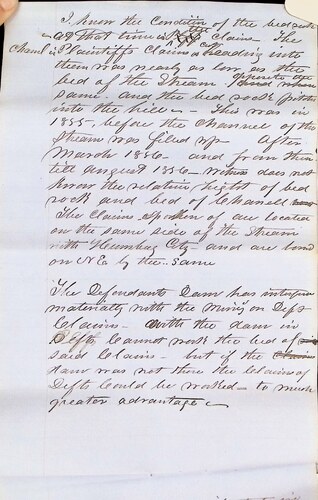 I know the Condition of the bed rock
at that time in the Claim The
Channel in Plaintiffs Claims Heading into
them was nearly as low as the
bed of the Stream opposite the
same and the bed rock pitches
into the hill — This was in
1855, before the Channel of the
Stream was filled up. After
March 1856 and from then
till August 1856 Witness does not
know the relative hight of bed
rock and bed of Channel
The Claims spoken of are located
on the same side of the Stream
with Humbug City and are bound
on N.E. by the same
The Defendants Dam has interfered
materially with the mining on Defts
Claims — With the dam in
Defts Cannot work the bed of
said Claims — but if the
dam was not there the Claims of
Defts Could be worked to much
greater advantage —